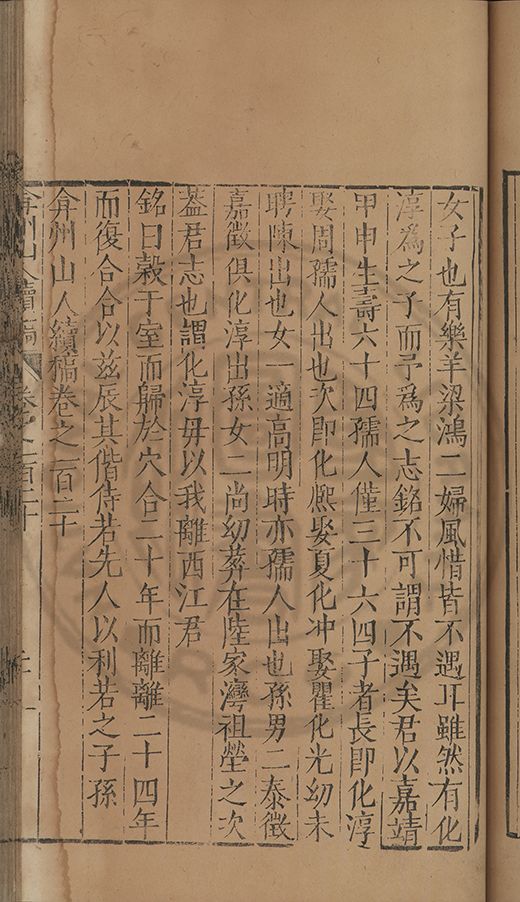 女子也有樂羊梁鴻二婦風惜皆不遇耳雖然有化
淳為之子而予為之志銘不可謂不遇矣君以嘉靖
甲申生壽六十四孺人僅三十六四子者長即化淳
娶周孺人出也次即化熈娶夏化冲娶瞿化光幼未
聘陳出也女一適高明時亦孺人出也孫男二泰徵
嘉徵俱化淳出孫女二尚幼葬在陸家灣祖塋之次
葢君志也謂化淳毋以我離西江君
銘曰榖于室而歸於穴合二十年而離離二十四年
而復合合以茲辰其偕侍若先人以利若之子孫
弇州山人續稿卷之一百二十
弇州山人續稿 卷之一百二十